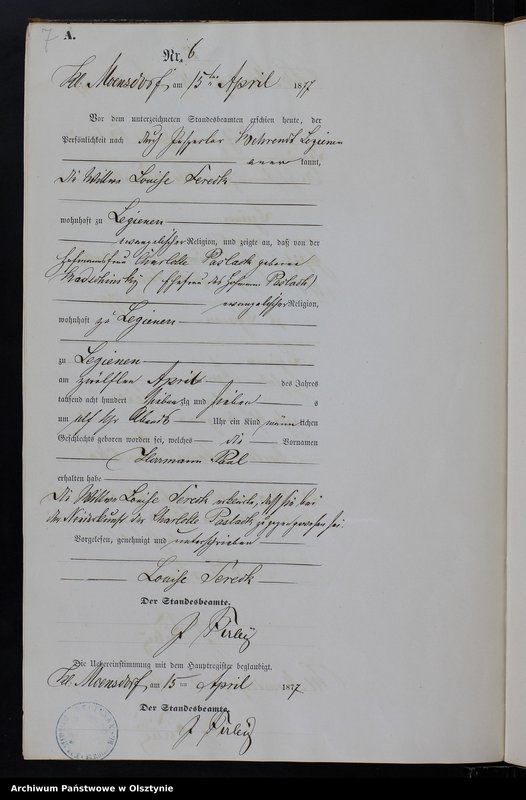 7 A.
Nr. 6
Kl. Moensdorf, am 15ten April 1877
Vor dem unterzeichneten Standesbeamten erschien heute, der
Persönlichkeit nach durch Behrendt Legienen
kannt,
Die Wittwe Louise Fereck
wohnhaft zu Legienen
evangelischer Religion, und zeigte an, daß von der
Charlotte Paslack geborene
(Ehefrau des Hofmann Paslack)
evangelischer Religion,
wohnhaft zu Legienen
zu Legienen
am zwölften April des Jahres
tausend acht hundert siebenzig und sieben s
um elf Uhr Abends Uhr ein Kind männlichen
Geschlechts geboren worden sei, welches die Vornamen
Herrmann Paul
erhalten habe
Die Wittwe Louise Fereck erklärte, daß sie bei
der Niederkunft der Charlotte Paslack zugegen gewesen sei.
Vorgelesen, genehmigt und unterschrieben
Louise Fereck
Der Standesbeamte.
Die Uebereinstimmung mit dem Hauptregister beglaubigt.
Kl. Moensdorf, am 15ten April 1877
Der Standesbeamte.
Archiwum Państwowe w Olsztynie